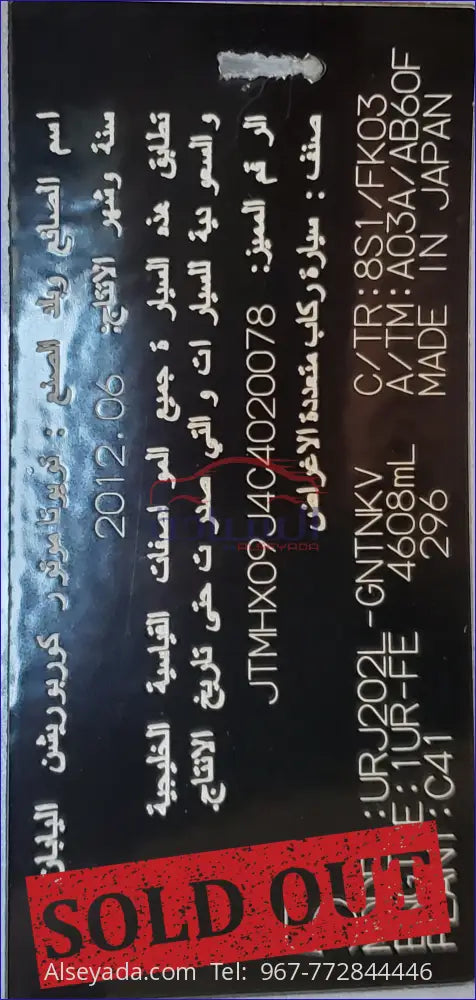 اسم الصانع وبلد الصنع : تويوتا موتور كوربوريشن اليابان
سنة وشهر الانتاج: 2012.06
تطابق هذه السيارة جميع المواصفات القياسية الخليجية
والسعودية للسيارات والتي صدرت حتى تاريخ الانتاج.
الرقم المميز: JTMHX09J4C4020078
صنف : سيارة ركاب متعددة الاغراض
:URJ202L-GNTNKV C/TR:8S1/FK03
:1UR-FE 4608mL A/TM:A03A/AB60F
PLANT:C41 296 MADE IN JAPAN
السيادة
ALSEYADA
SOLD OUT
Alseyada.com Tel: 967-772844446